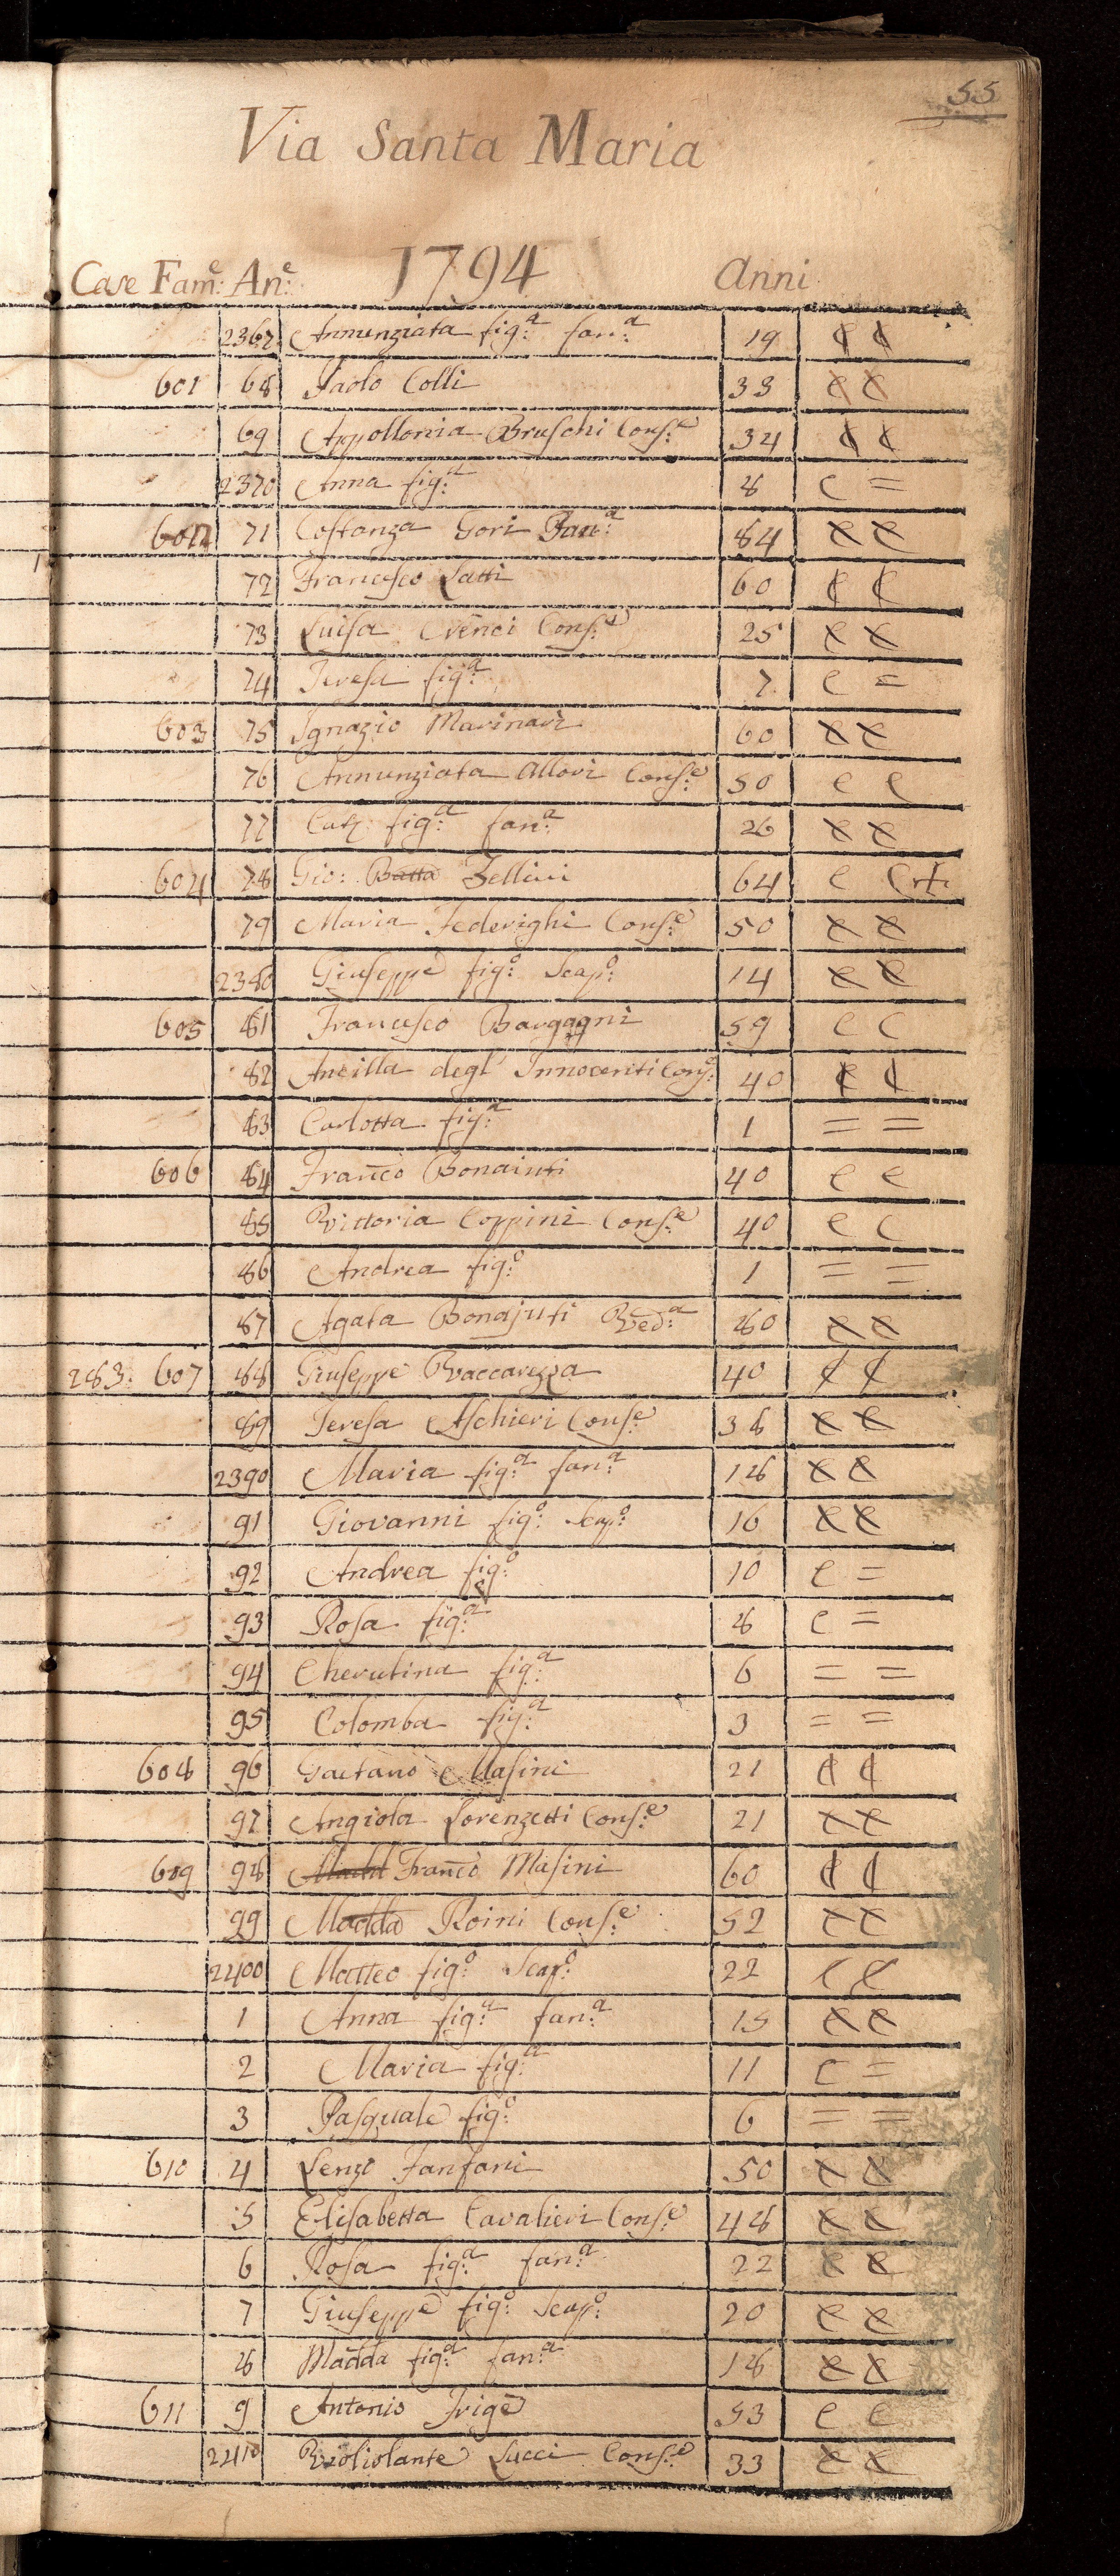 55
Via Santa Maria
1794
Case Fam:e An:e Anni
2367 Annunziata fig:a fan:a 19 C C
601 68 Paolo Colli 33 C C
69 Appollonia Bruschi Cons:e 34 C C
2370 Anna fig:a 8 C =
602 71 Costanza Gori Fan:a 84 C C
72 Francesco Latti 60 C C
73 Luisa Crenci Cons:e 25 C C
74 Teresa fig:a 7 C =
603 75 Ignazio Marinari 60 C C
76 Annunziata Allori Cons:e 50 C C
77 Catz fig:a fan:a 26 C C
604 78 Gio: Batta Zellini 64 C C+
79 Maria Federighi Cons:e 50 C C
2380 Giuseppe fig:o Scap:o 14 C C
605 81 Francesco Bargagni 59 C C
82 Ancilla degl' Innocenti Cons:e 40 C C
83 Carlotta fig:a 1 = =
606 84 Franco Bonaiuti 40 C C
85 Vittoria Coppini Cons:e 40 C C
86 Andrea fig:o 1 = =
87 Agata Bonajuti Ved:a 80 C C
283: 607 88 Giuseppe Vaccarezza 40 C C
89 Teresa Aschieri Cons:e 38 C C
2390 Maria fig:a fan:a 18 C C
91 Giovanni fig:o Scap:o 16 C C
92 Andrea fig:o 10 C =
93 Rosa fig:a 8 C =
94 Cherubina fig:a 6 = =
95 Colomba fig:a 3 = =
608 96 Gaetano Masini 21 C C
97 Angiola Lorenzetti Cons:e 21 C C
609 98 Franco Masini 60 C C
99 Madda Roini Cons:e 52 C C
2400 Matteo fig:o Scap:o 22 C C
1 Anna fig:a fan:a 15 C C
2 Maria fig:a 11 C =
3 Pasquale fig:o 6 = =
610 4 Lenzo Fanfani 50 C C
5 Elisabetta Cavalieri Cons:e 48 C C
6 Rosa fig:a fan:a 22 C C
7 Giuseppe fig:o Scap:o 20 C C
8 Madda fig:a fan:a 18 C C
611 9 Antonio Frige 53 C C
2410 Violiolante Lucci Cons:e 33 C C